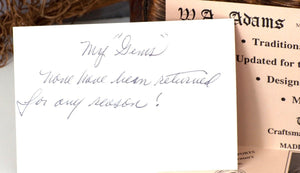 My "Gems"
None have been returned
for any reason!
W.A. Adams
• Tradition
Updated for t
• Design
• M
Craftsma
MADE